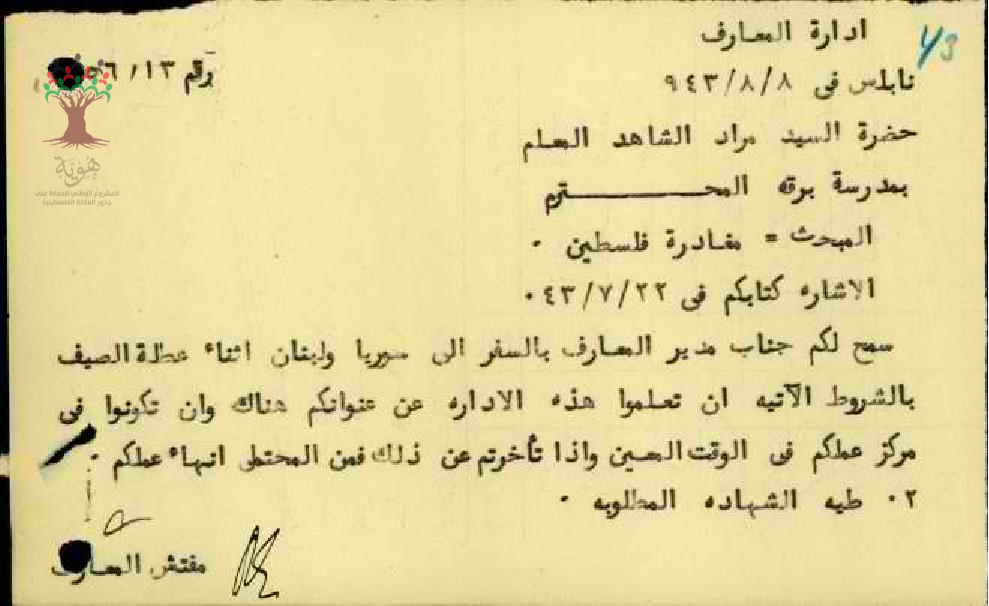 ادارة المعارف
43
رقم ٥٦/١٣
نابلس فى ٩٤٣/٨/٨
حضرة السيد مراد الشاهد المعلم
بمدرسة برقه المحـــــــــترم
المبحث = مغادرة فلسطين ٠
الاشاره كتابكم فى ٠٤٣/٧/٢٢
سمح لكم جناب مدير المعارف بالسفر الى سوريا ولبنان اثناء عطلة الصيف
بالشروط الآتيه ان تعلموا هذه الاداره عن عنوانكم هناك وان تكونوا فى
مركز عملكم فى الوقت المعين واذا تأخرتم عن ذلك فمن المحتمل انهاء عملكم ٠
٢٠ طيه الشهاده المطلوبه ٠
مفتش المعارف
هُويَّة
المشروع الوطني للحفاظ على
جذور العائلة الفلسطينية